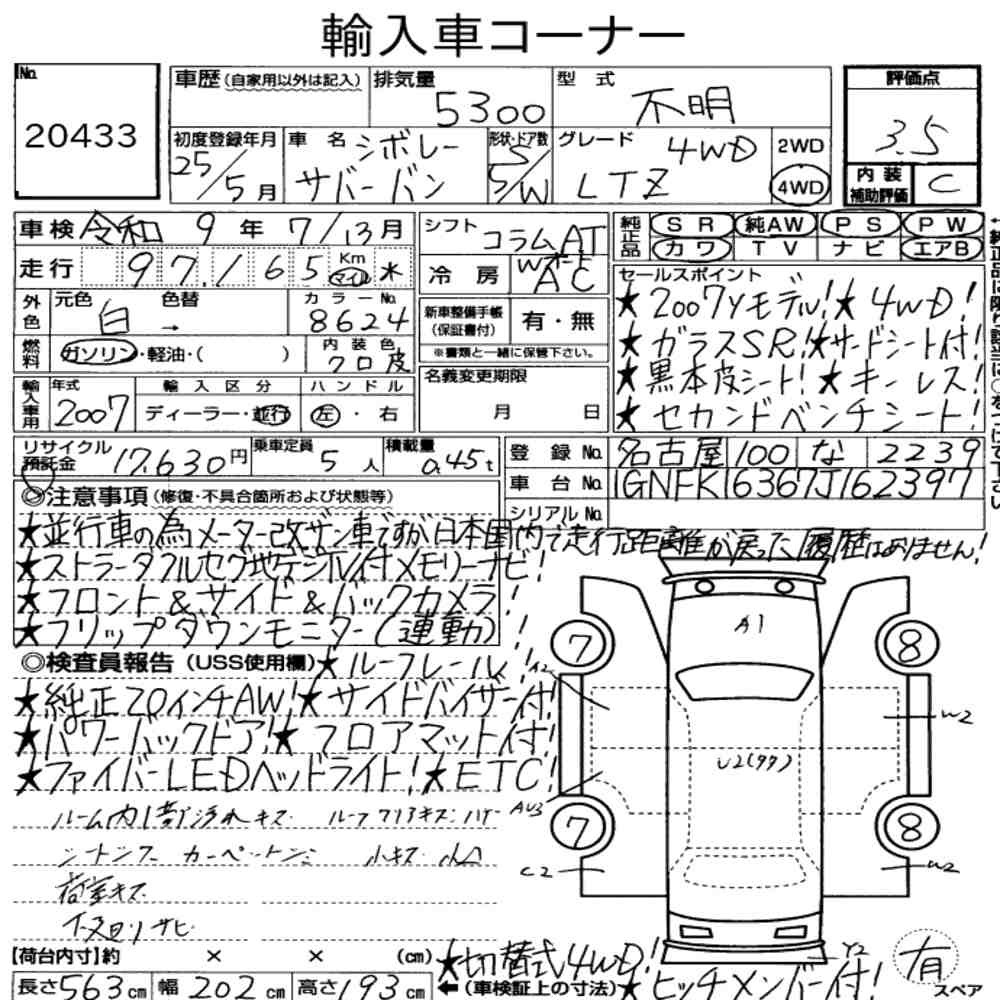 輸入車コーナー
No. 20433
車歴(自家用以外は記入) 排気量 5300 型式 不明
評価点 3.5
初度登録年月 25/5月 車名 シボレー サバーバン 形状・ドア数 S/5/W グレード 4WD LTZ 2WD 4WD
内装補助評価 C
車検 令和 9年 7/13月 シフト コラムAT
純正品 SR 純AW PS PW
カワ TV ナビ エアB
走行 97,165 Km マイル 冷房 Wオート AC
外色 元色 白 色替 → カラーNo. 8624
燃料 ガソリン・軽油・( ) 内装色 クロ皮
新車整備手帳(保証書付) 有・無
※書類と一緒に保管下さい。
セールスポイント
★2007Yモデル!★4WD!
★ガラスSR!★サードシート付!
★黒本皮シート!★キーレス!
★セカンドベンチシート!
輸入車用 年式 2007 輸入区分 ディーラー・並行 ハンドル 左・右
名義変更期限 月 日
リサイクル預託金 17,630円 乗車定員 5人 積載量 0.45t
登録No. 名古屋 100 な 2239
車台No. 1GNFK16367J162397
シリアルNo.
◎注意事項(修復・不具合箇所および状態等)
★並行車の為メーター改ザン車ですが日本国内で走行距離が戻った履歴はありません!
★ストラーダフルセグ地デジTV付メモリーナビ!
★フロント&サイド&バックカメラ!
★フリップダウンモニター(連動)!
◎検査員報告(USS使用欄)★ルーフレール!
★純正20インチAW!★サイドバイザー付!
★パワーバックドア!★フロアマット付!
★ファイバーLEDヘッドライト!★ETC!
ルーム内 キズ
シートシワ カーペットシミ 小キズ
荷室キズ
下廻りサビ
A1
7
8
A2
W2
U2
AU3
7
8
C2
U2
Y2
【荷台内寸】約 × × (cm)
★切替式4WD!
長さ563cm 幅202cm 高さ193cm ←(車検証上の寸法)★ヒッチメンバー付!
有
スペア